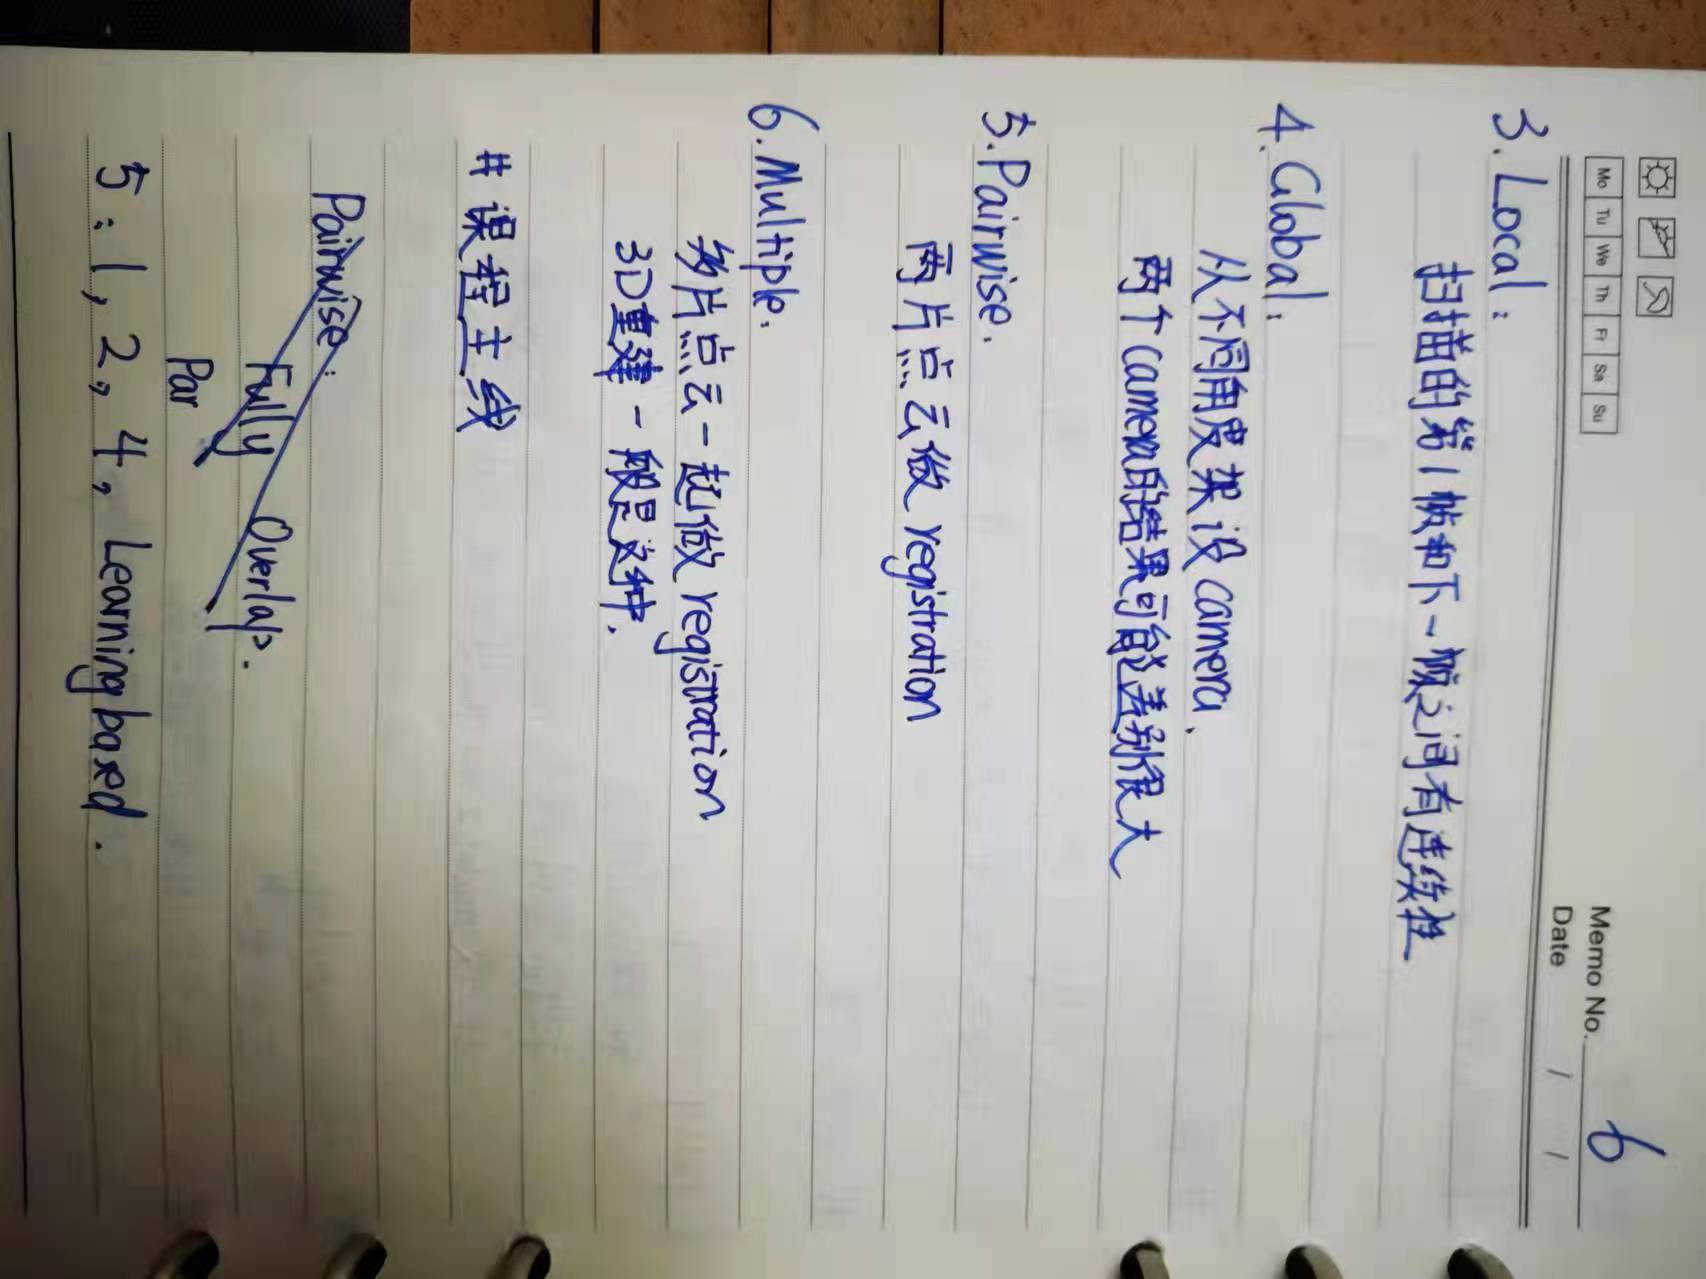 Mo Tu We Th Fr Sa Su
Memo No. 6
Date / /
3. Local:
扫描的第1帧和下一帧之间有连续性
4. Global:
从不同角度架设camera、
两个camera的结果可能差别很大
5. Pairwise.
两片点云做 registration
6. Multiple.
多片点云一起做 registration
3D重建一般是这种.
# 课程主线
Pairwise:
Fully Overlap.
Par
5: 1, 2, 4, Learning based.